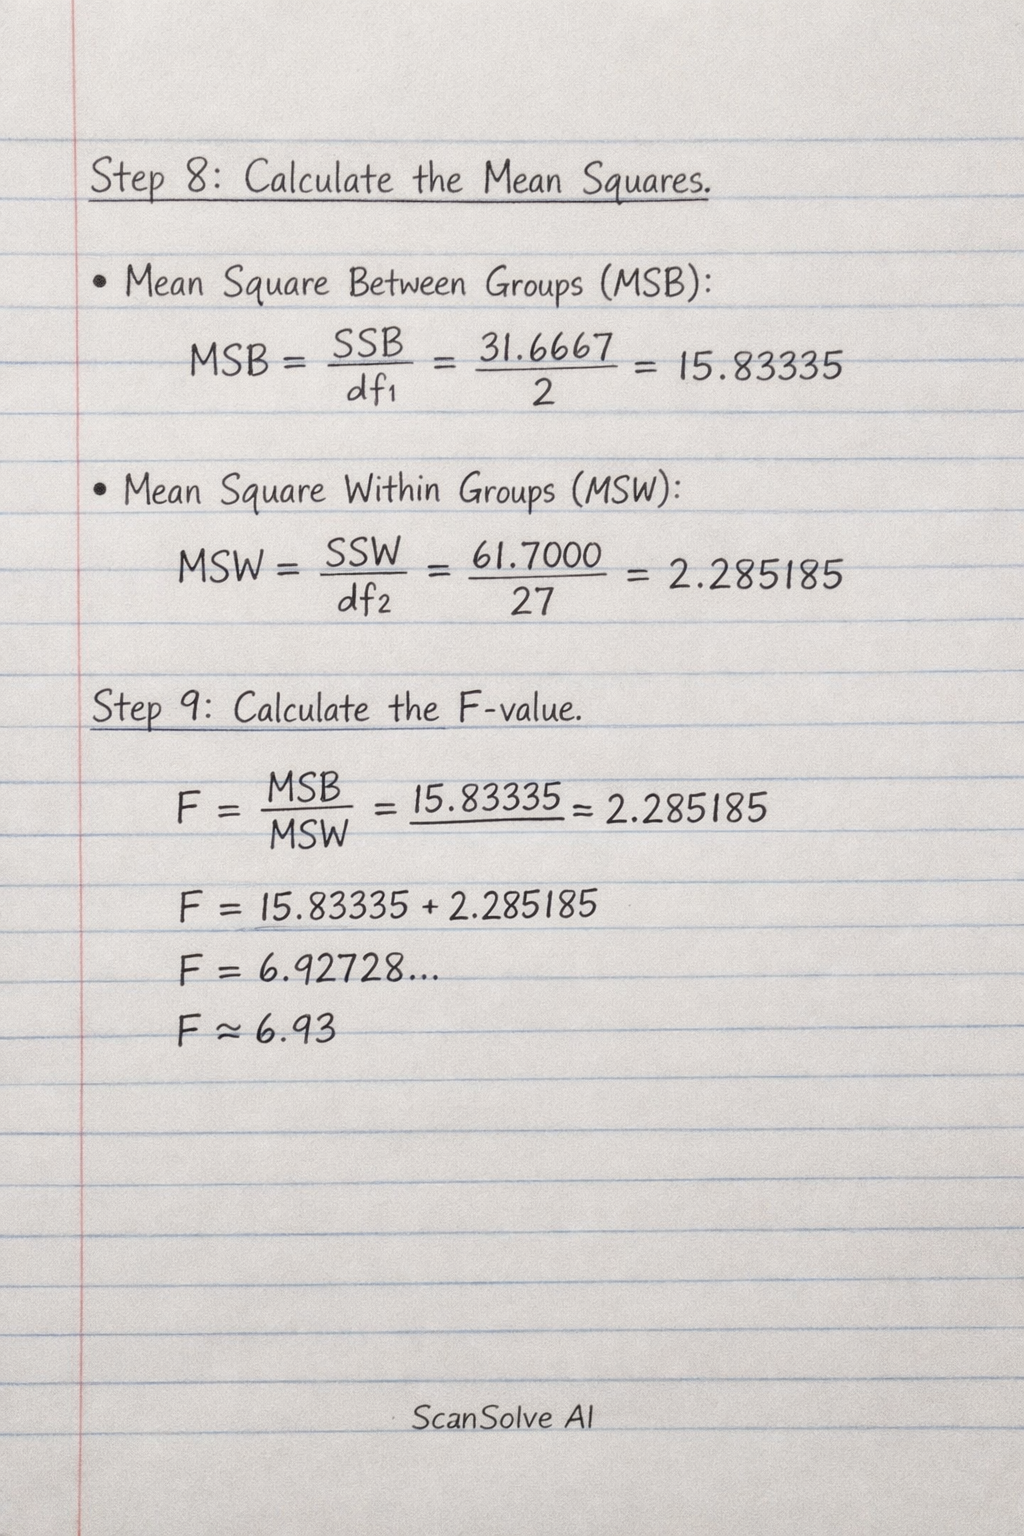 Step 8: Calculate the Mean Squares.
• Mean Square Between Groups (MSB):
MSB = SSB/df₁ = 31.6667/2 = 15.83335
• Mean Square Within Groups (MSW):
MSW = SSW/df₂ = 61.7000/27 = 2.285185
Step 9: Calculate the F-value.
F = MSB/MSW = 15.83335 = 2.285185
F = 15.83335 + 2.285185
F = 6.92728...
F ≈ 6.93
ScanSolve AI